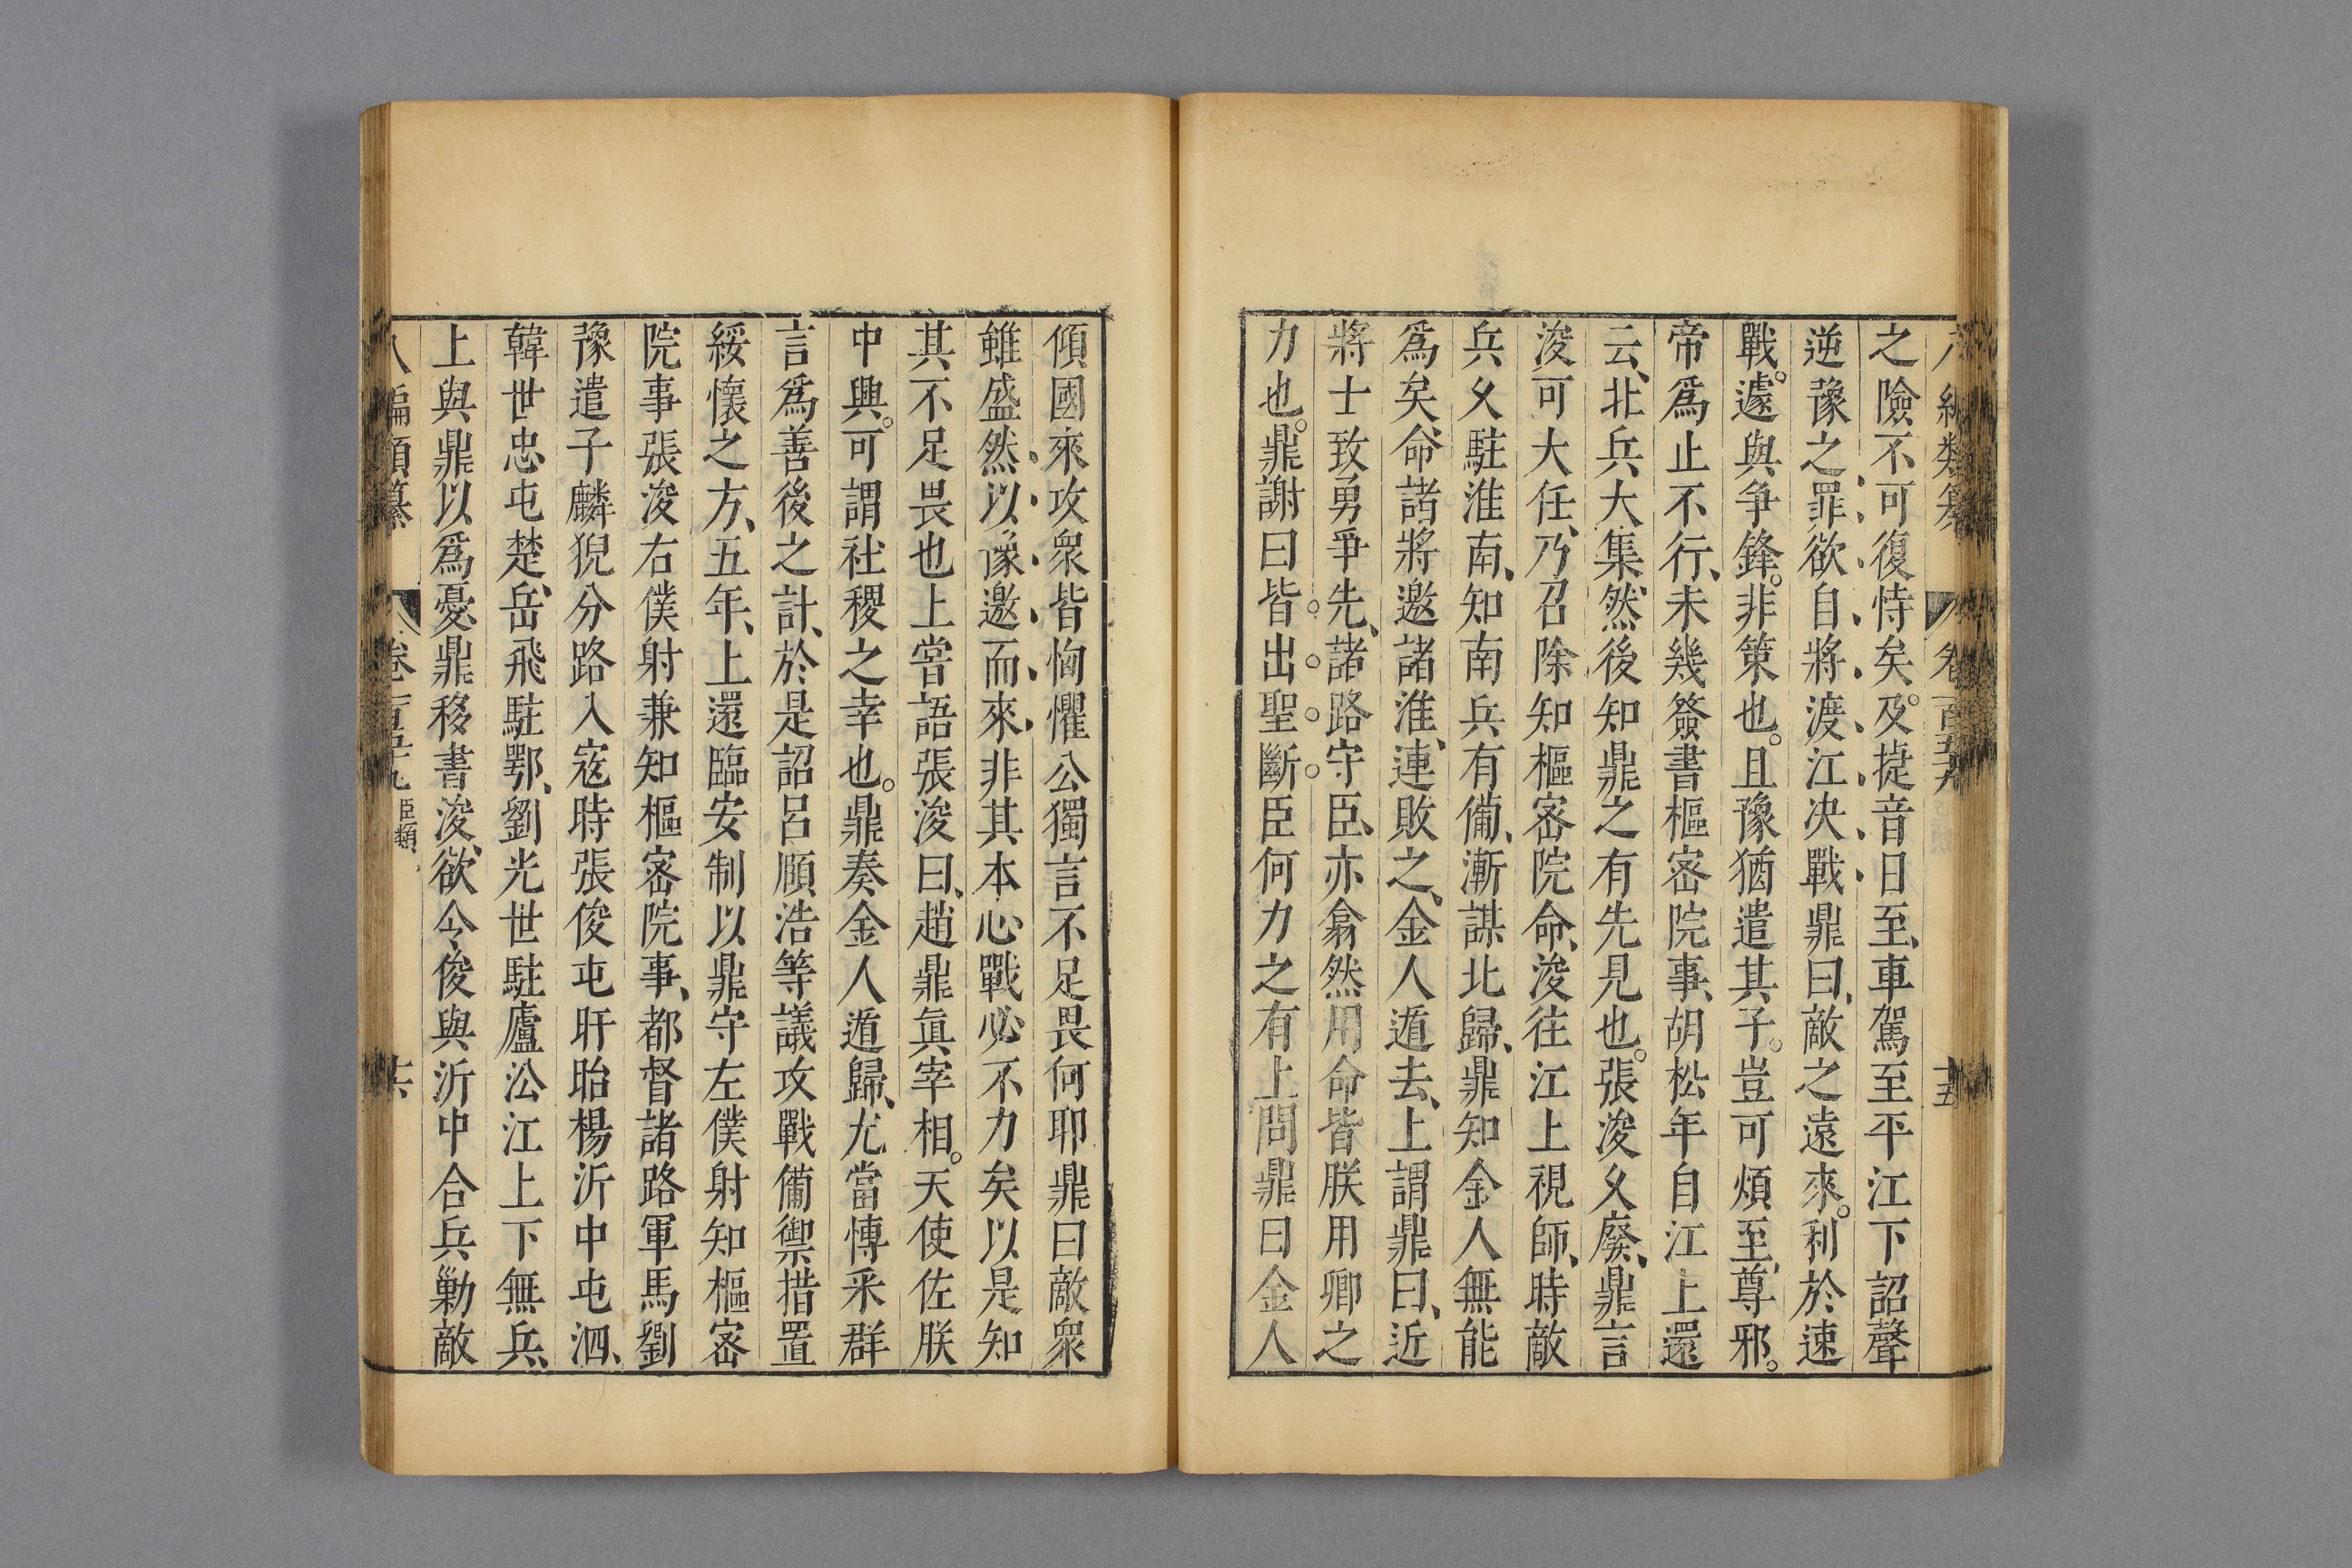 八編類纂 卷百五十九 十五
之險不可復恃矣。及捷音日至、車駕至平江下詔聲
逆豫之罪欲自將渡江决戰鼎曰、敵之遠來。利於速
戰。遽與爭鋒。非策也。且豫猶遣其子。豈可煩至尊邪。
帝爲止不行、未幾簽書樞宻院事、胡松年自江上還
云、北兵大集、然後知鼎之有先見也。張浚乆廢、鼎言
浚可大任、乃召除知樞宻院命、浚往江上視師、時敵
兵乆駐淮南、知南兵有備、漸謀北歸、鼎知金人無能
爲矣、命諸將邀諸淮、連敗之、金人遁去、上謂鼎曰、近
將士致勇爭先、諸路守臣、亦翕然用命皆朕用卿之
力也。鼎謝曰皆出聖斷臣何力之有上問鼎曰金人
傾國來攻衆皆恟懼公獨言不足畏何耶鼎曰敵衆
雖盛然以豫邀而來非其本心戰必不力矣以是知
其不足畏也上嘗語張浚曰、趙鼎眞宰相。天使佐朕
中興。可謂社稷之幸也。鼎奏金人遁歸、尤當慱采群
言爲善後之計、於是詔呂頤浩等議攻戰備禦措置
綏懷之方、五年、上還臨安制以鼎守左僕射知樞宻
院事張浚右僕射兼知樞宻院事、都督諸路軍馬劉
豫遣子麟猊分路入宼時張俊屯盱眙楊沂中屯泗、
韓世忠屯楚、岳飛駐鄂、劉光世駐廬㳂江上下無兵、
上與鼎以爲憂鼎移書浚、欲令俊與沂中合兵勦敵
八編類纂 卷一百五十九 臣類 十六